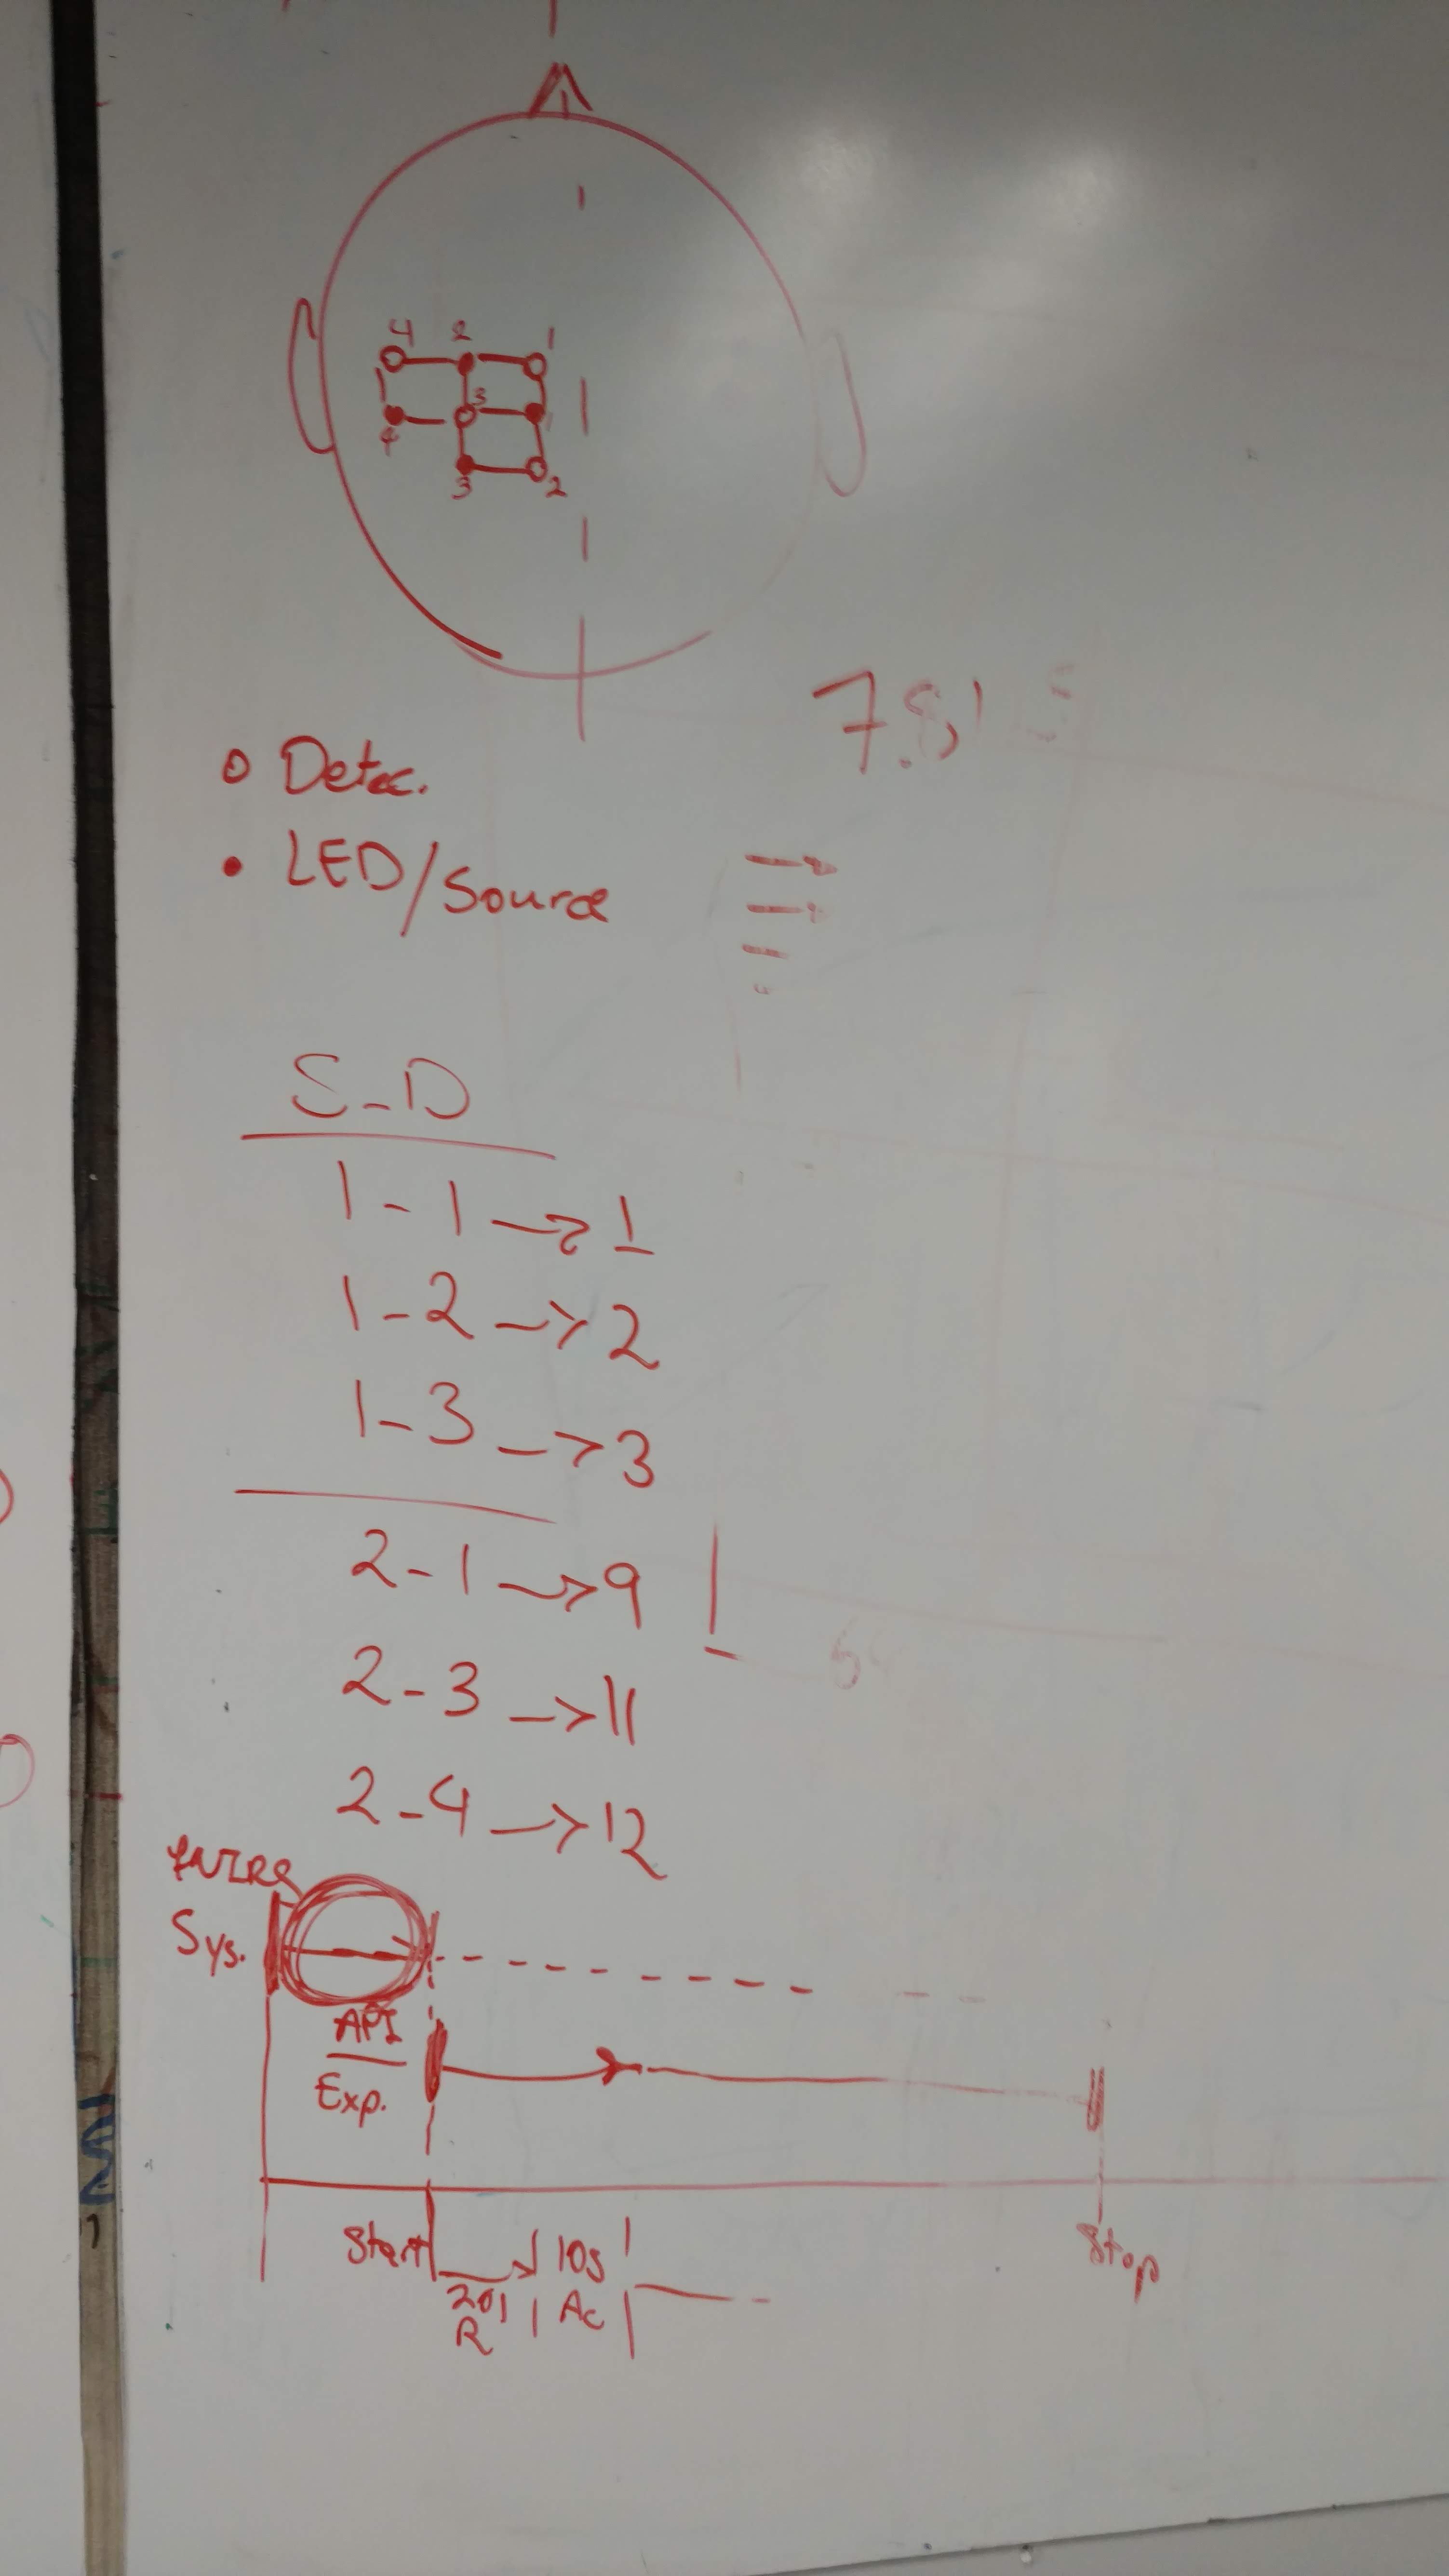 4 2 1
4 3 1
3 2
7.81
o Detec.
• LED/Source
S-D
1-1 → 1
1-2 → 2
1-3 → 3
2-1 → 9
2-3 → 11
2-4 → 12
fNIRS
Sys.
API
Exp.
Start 10s Stop
20
R Ac